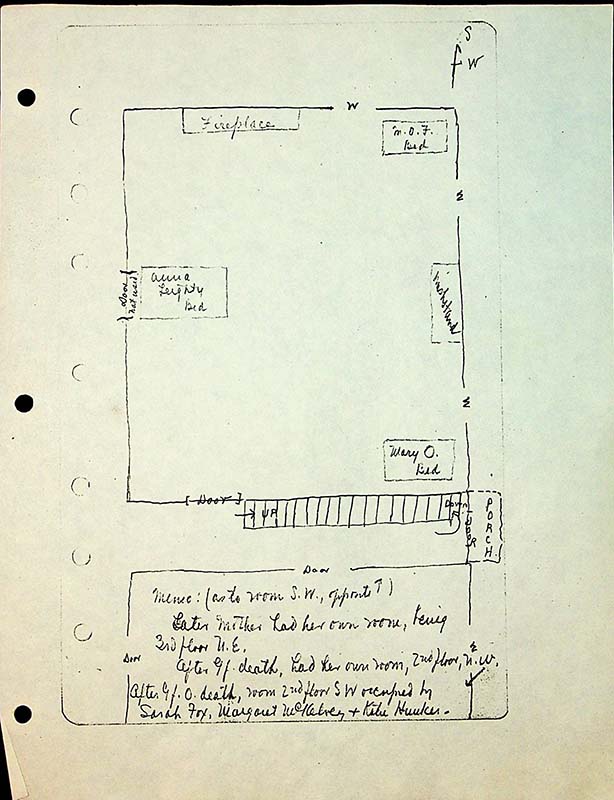 S
W
W
Fireplace
M.O.F.
Bed
W
Door
not used
Anna
Leighty
Bed
Washstand
W
Mary O.
Bed
Door
UP
Down
DOOR
PORCH
Door
Memo: (as to room S.W., opposite ↑)
Later Mother had her own room, being
3rd floor N.E.
Door
After Gf. death, had her own room, 2nd floor, N.W.
After Gf. O. death, room 2nd floor SW occupied by
Sarah Fox, Margaret McKelvey + Katie Hunker.